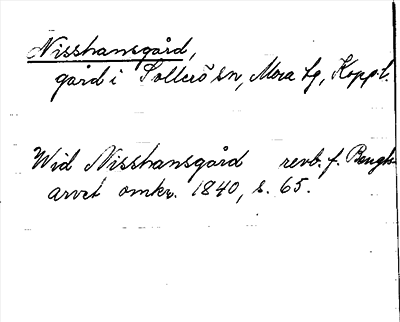 Nisshansgård,
gård i Sollerö sn, Mora tg, Koppb.
Wid Nisshansgård revb. f. Bengts
arvet omkr. 1840, s. 65.